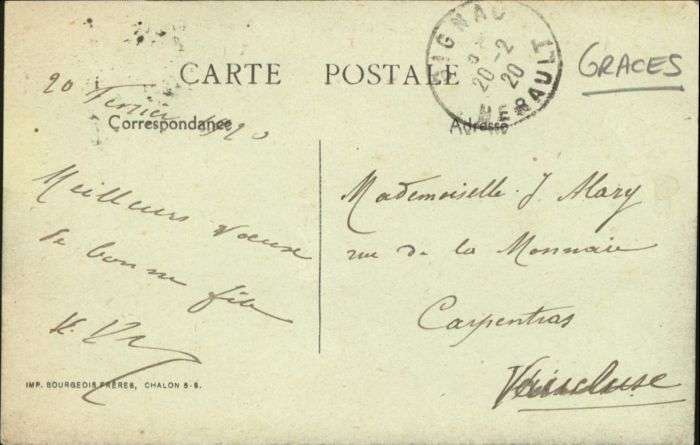 CARTE POSTALE
GIGNAC
20-2
20
HERAULT
GRACES
20 Fevrier 1920
Correspondance
Adresse
Meilleurs vœux
de bonne fête
Mademoiselle J. Alary
rue de la Monnaie
Carpentras
Vaucluse
IMP. BOURGEOIS FRÈRES, CHALON S-S.